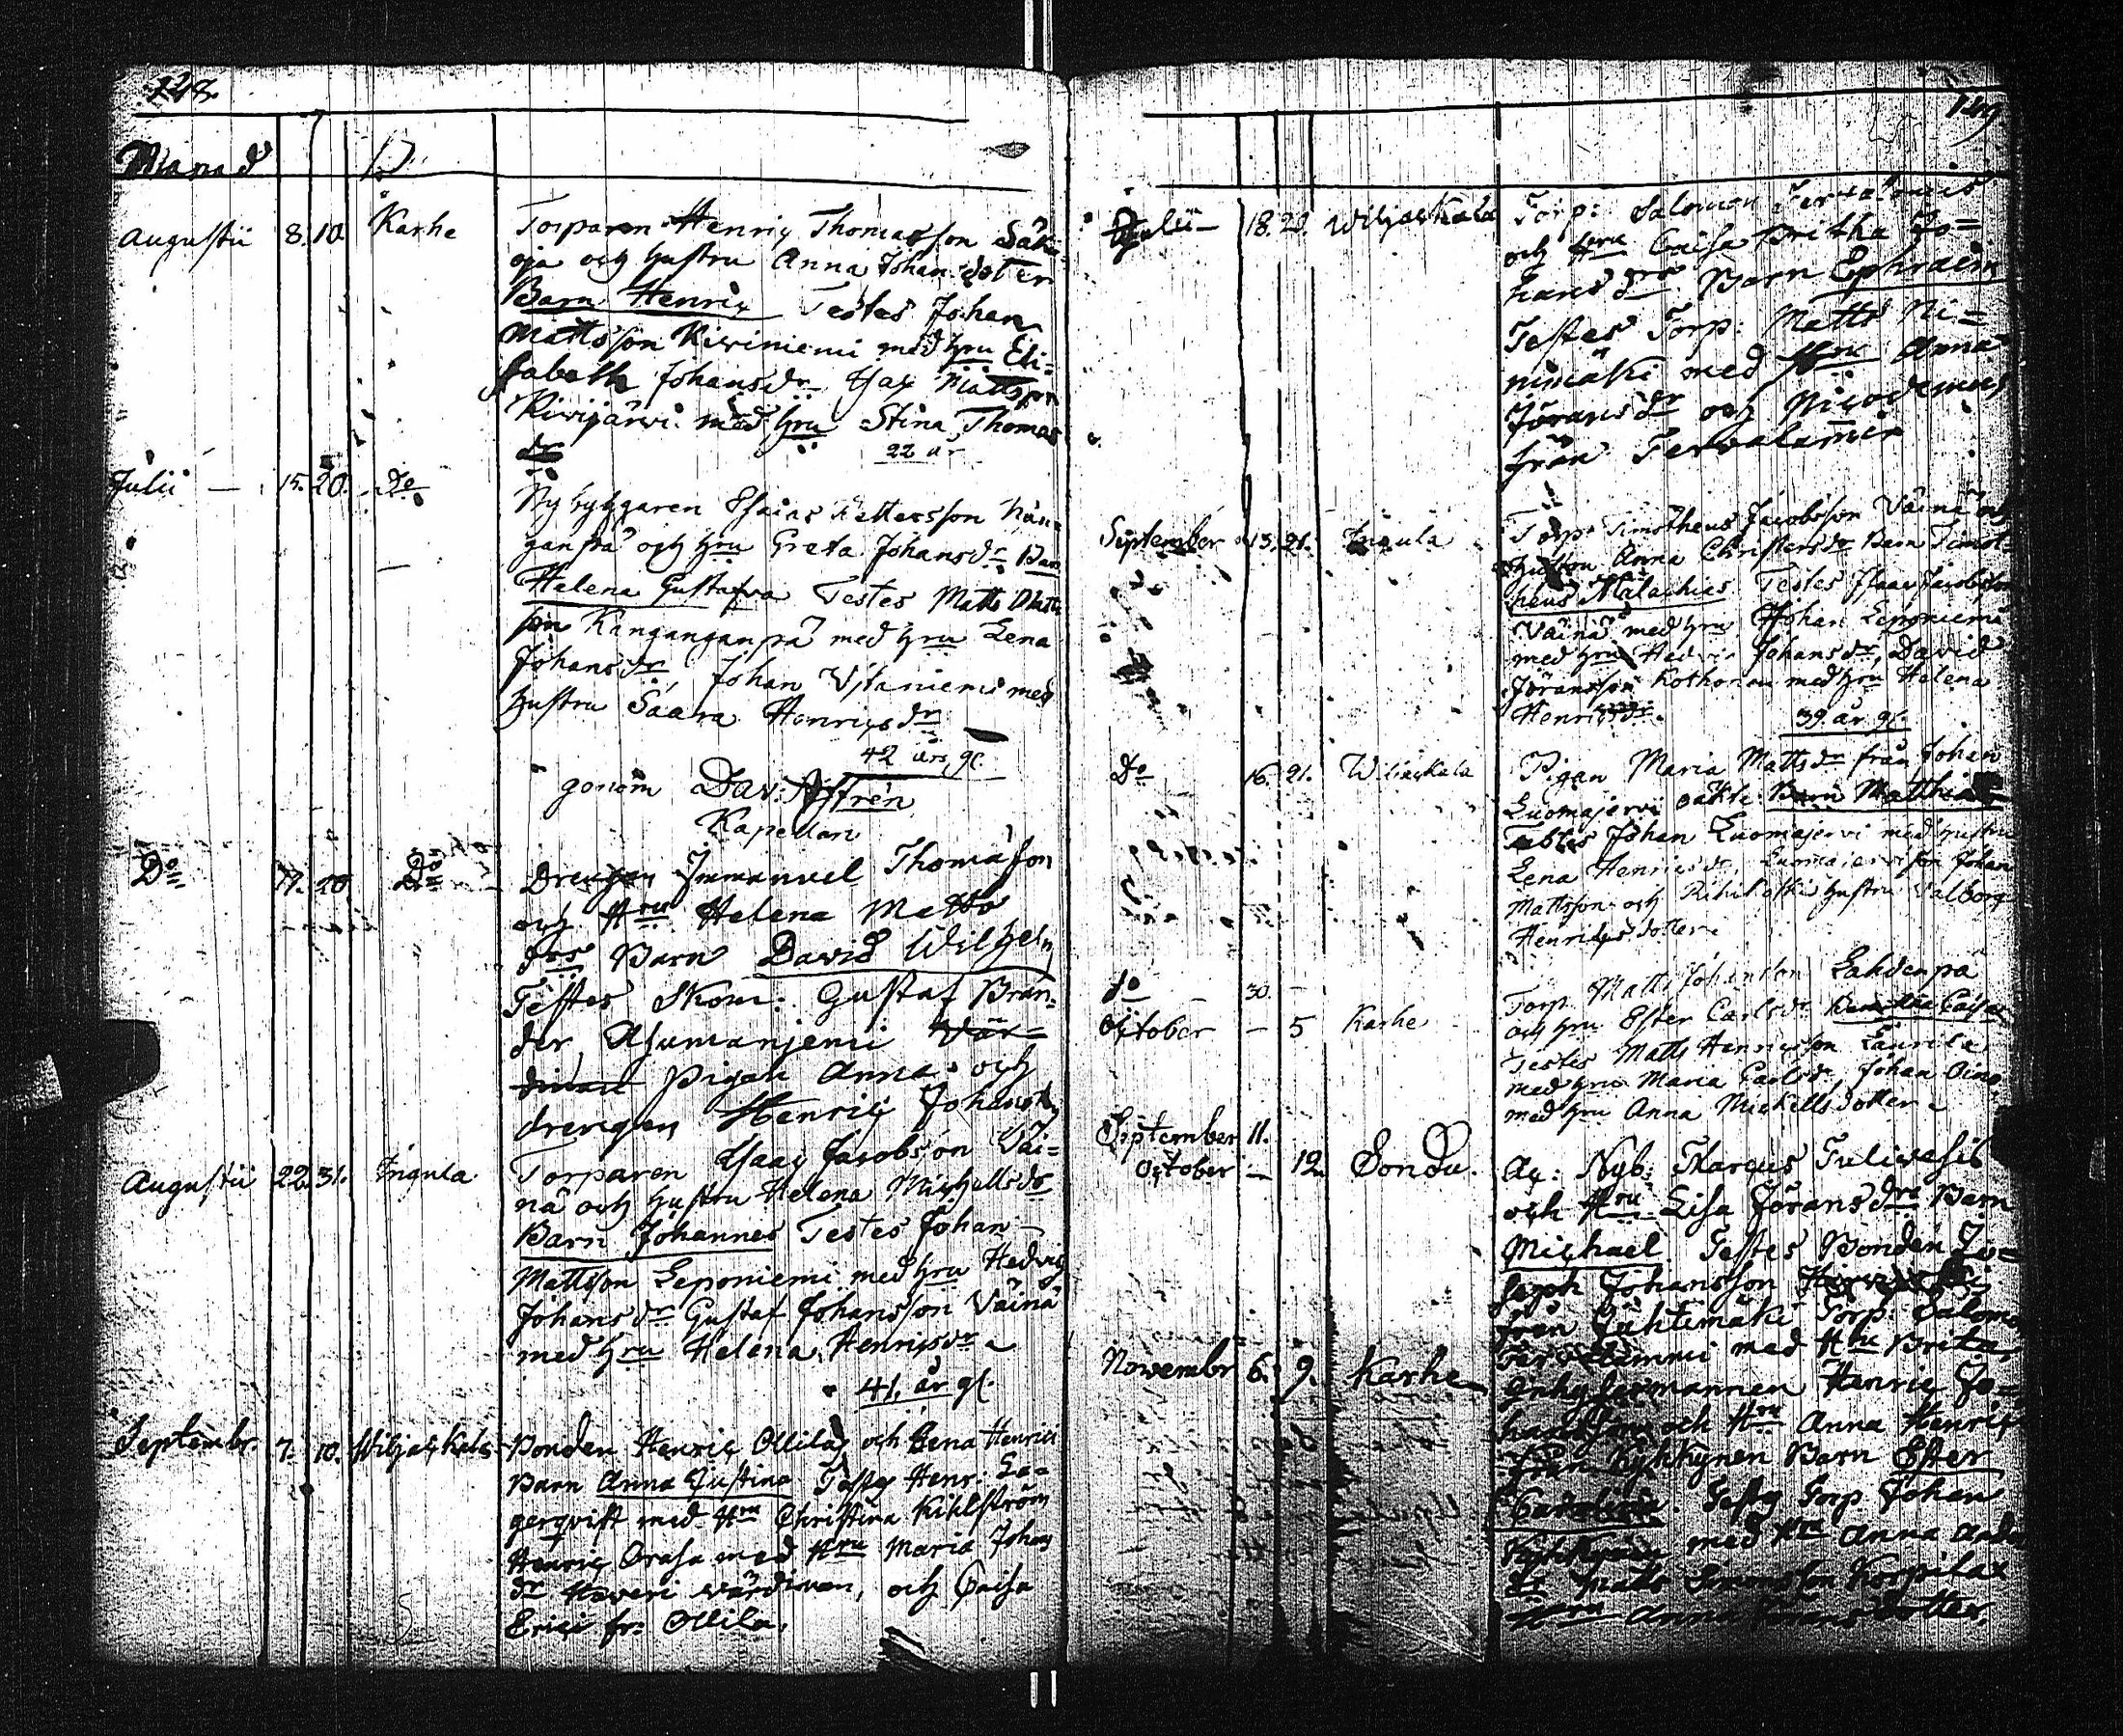 128.
Manad
Augustii 8. 10. Karhe
Torparen Henric Thomasson Säk-
oja och hustru Anna Johan doter
Barn Henric Testes Johan
Mattsson Kiviniemi med hru Eli-
sabeth Johansdr Isac Mattson
Kirijärvi med hru Stina Thomas
dr 22 år
Julii — 15. 20. Do
Nybyggaren Esaias Pettersson
och hru Greta Johansdr Barn
Helena Gustafva Testes Matts Matts
son Kanganpä med hru Lena
Johansdr, Johan Vjtaniemi med
hustru Saara Henricsdr
42 års gl.
genom Dav:
Kapellan
Do 17. 20 Do
Drengen Immanuel Thomasson
och Hru Helena Matts
drs Barn David Wilhelm
Testes Skom: Gustaf Bran-
der, Asumaniemi Vär-
dinan Pigan Anna och
drengen Henric Johanss
Augustii 22. 31. Ingula
Torparen Isaac Jacobsson Väi-
nä och hustru Helena Michelsdr
Barn Johannes Testes Johan
Mattsson Leponiemi med hru Hedvig
Johansdr Gustaf Johansson Väinä
med hru Helena Henricsdr
41. år gl.
Septembr. 7. 10. Wiljackala
Bonden Henric Ollila och Lena Henrici
Barn Anna Justina Testes Henr. La-
gerqvist med Hru Christina Kihlström
Henric Orasa med Hru Maria Johans
dr Haveri värdinnan, och Caisa
Erici fr. Ollila.
129
Julii — 18. 20. Wiljackala
Torp: Salomon
och Hru Caisa Britha Jo-
hans drs Barn Ephraim
Testes Torp: Matts Ni-
nimäki med Hru Anna
Jöransdr och Nicodemus
från Tervalammi
September 15. 21. Ingula
Torp: Timotheus Jacobsson Väinä och
hustru Anna Christersdr Barn Timot-
heus Malachias Testes Isaac Jacobsson
Väinä med hru Johan Leponiemi
med hru Hedvig Johansdr, David
Jöransson med hru Helena
Henricsdr. 39. år gl.
Do 16. 21. Wiljackala
Pigan Maria Mattsdr från Johan
Luomajervi oäkta Barn Matthias
Testes Johan Luomajervi med hustru
Lena Henricsdr, Luomajervi son Johan
Mattsson och hustru Valborg
Henrics dotter
do 30. —
October — 5 Karhe
Torp. Matts Johansson Lahdenpä
och hru Ester Carlsdr Caisa
Testes Matts Henricsson Laurila
med hru Maria Carlsdr, Johan
med hru Anna Michelsdotter
September 11.
October — 12. Sondu.
Ac: Nyb: Marcus Tulivesis
och Hru Lisa Jöransdrs Barn
Michael Testes Bonden Jo-
seph Johansson
från Lähtimäki Torp: Salomo
med Hru Brita
Novembr 6. 9. Karhe
Inhysesmannen Henric Jo-
hansson och Hru Anna Henrics
från Kykkynen Barn Ester
Carolina. Testes Torp Johan
med Hru Anna Anders
dr Matts Simonsson Korpilax
Hru Anna Jörans dotter